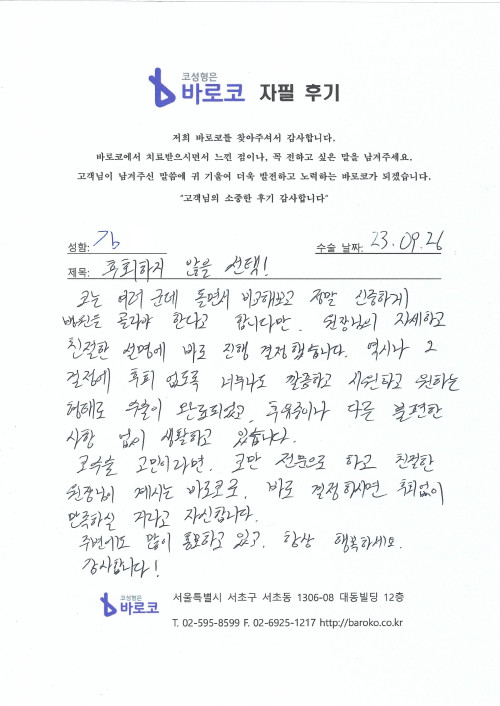 코성형은
바로코 자필 후기
저희 바로코를 찾아주셔서 감사합니다.
바로코에서 치료받으시면서 느낀 점이나, 꼭 전하고 싶은 말을 남겨주세요.
고객님이 남겨주신 말씀에 귀 기울여 더욱 발전하고 노력하는 바로코가 되겠습니다.
"고객님의 소중한 후기 감사합니다"
성함: 김 수술 날짜: 23.09.26
제목: 후회하지 않을 선택!
코는 여러 군데 돌면서 비교해보고 정말 신중하게
병원을 골라야 한다고 합니다만, 원장님의 자세하고
친절한 설명에 바로 진행 결정했습니다. 역시나 그
결정에 후회 없도록 너무나도 깔끔하고 시원하고 원하는
형태로 수술이 완료되었고, 후유증이나 다른 불편한
사항 없이 생활하고 있습니다.
코수술 고민이라면, 코만 전문으로 하고 친절한
원장님이 계시는 바로코로, 바로 결정하시면 후회없이
만족하실 거라고 자신합니다.
주변에도 많이 홍보하고 있고, 항상 행복하세요.
감사합니다!
코성형은
바로코
서울특별시 서초구 서초동 1306-08 대동빌딩 12층
T. 02-595-8599 F. 02-6925-1217 http://baroko.co.kr